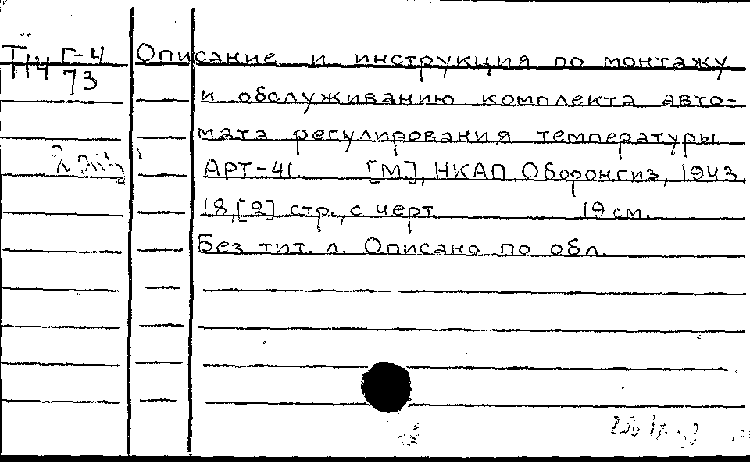 Т Г-4
114 73
Описание и инструкция по монтажу
и обслуживанию комплекта авто-
мата регулирования температуры
АРТ-41. [М], НКАП Оборонгиз, 1943.
18,[2] стр., с черт. 19 см.
Без тит. л. Описано по обл.